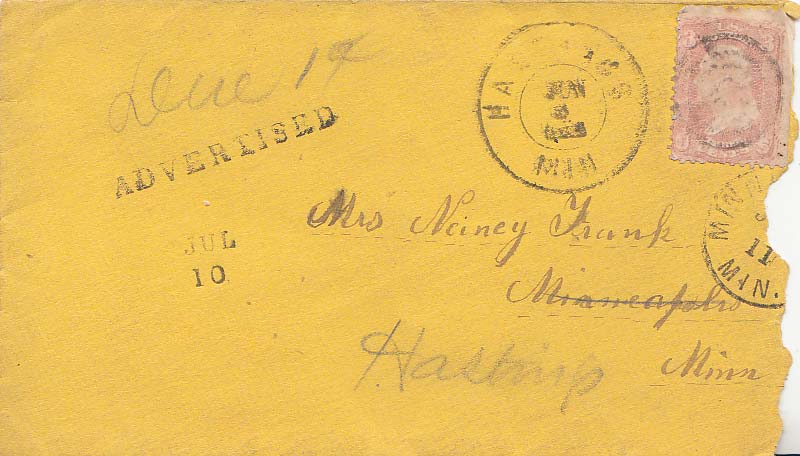 Due 1¢
ADVERTISED
HASTINGS
JUN
MIN
JUL
10
Mrs Nciney Frank
Minneapolis
Hastings
Minn
MINN
11
MIN.
3
3